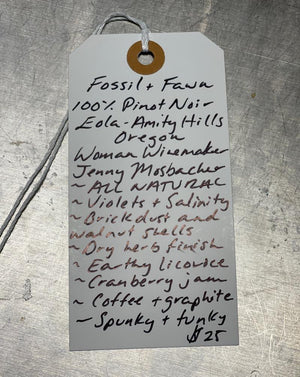 Fossil + Fawn
100% Pinot Noir
Eola-Amity Hills
Oregon
Woman Winemaker
Jenny Mosbacher
~ ALL NATURAL
~ Violets + Salinity
~ Brickdust and
walnut shells
~ Dry herb finish
~ Earthy licorice
~ Cranberry jam
~ Coffee + graphite
~ Spunky + funky
$25